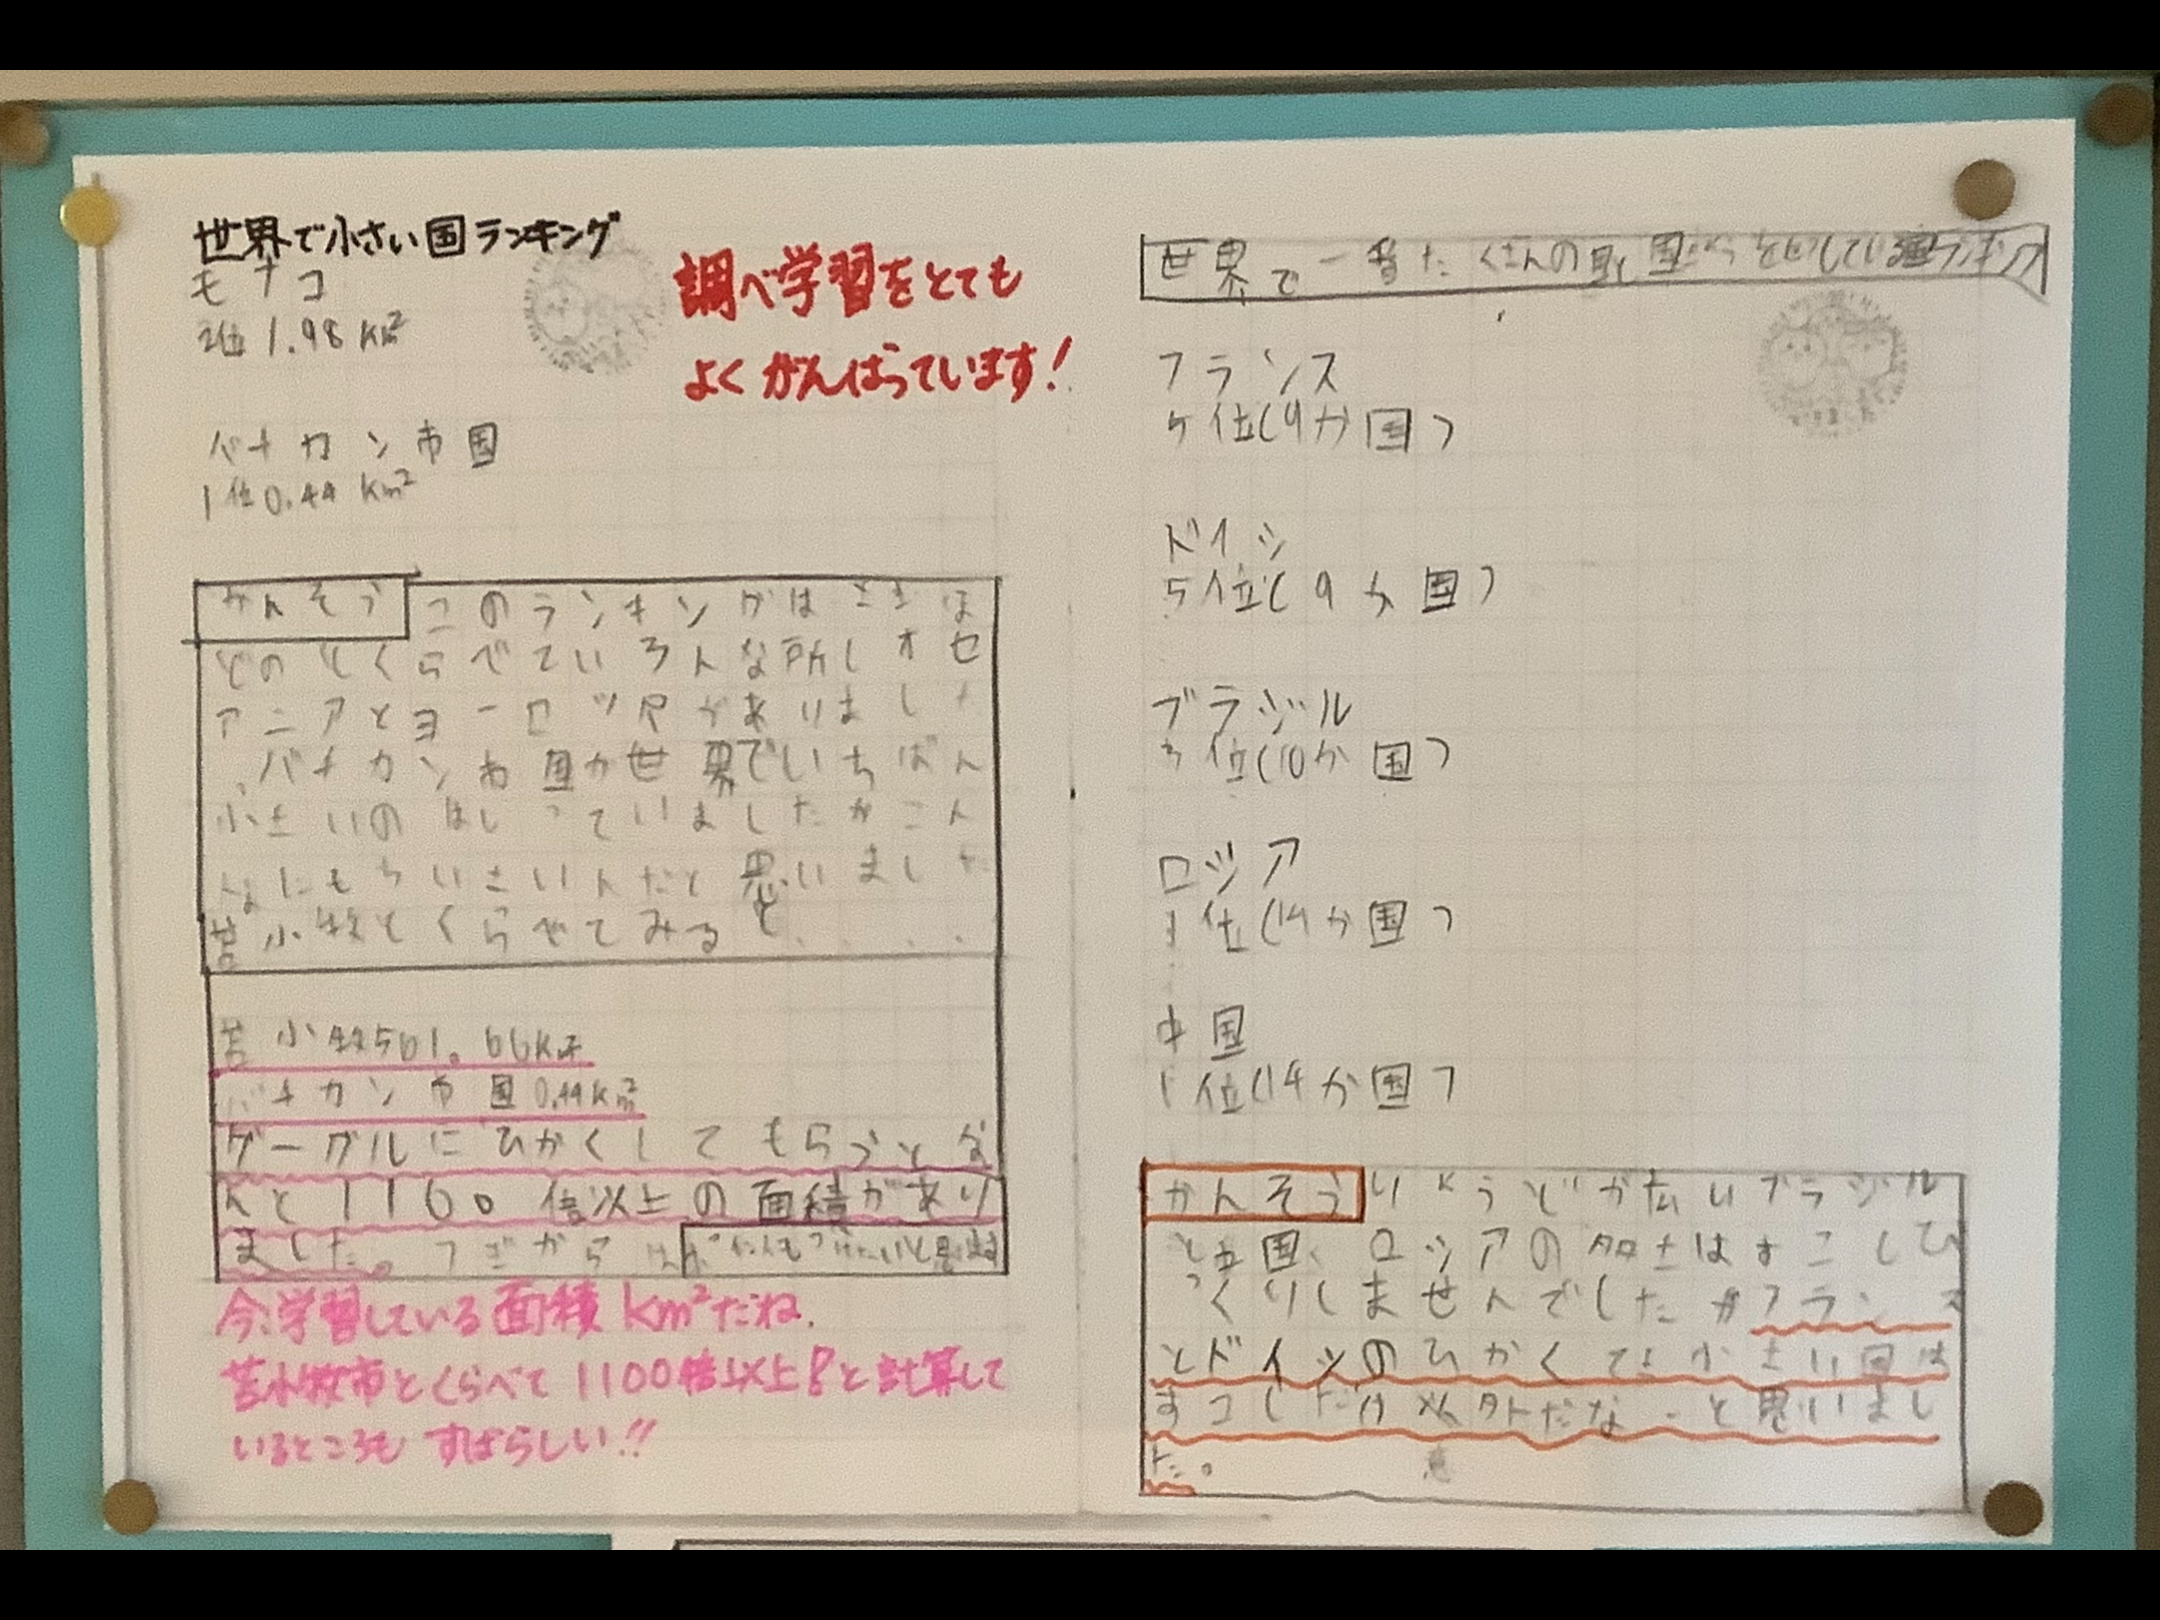 世界で小さい国ランキング
モナコ
2位 1.98 km²
バチカン市国
1位 0.44 km²
調べ学習をとても
よくがんばっています!
かんそう このランキングはさきほ
どのとくらべていろんな所しオセ
アニアとヨーロッパがありました
、バチカン市国が世界でいちばん
小さいのはしっていましたがこん
なにもちいさいんだと思いました
苫小牧とくらべてみると....
苫小牧561.66km²
バチカン市国0.44km²
グーグルにひかくしてもらうとな
んと1160倍以上の面積があり
ました。つぎからは
今、学習している面積 km²だね.
苫小牧市とくらべて1100倍以上!と計算して
いるところもすばらしい!!
世界で一番たくさんの
フランス
5位(9か国)
ドイツ
5位(9か国)
ブラジル
3位(10か国)
ロシア
1位(14か国)
中国
1位(14か国)
かんそう りょうどが広いブラジル
と中国、ロシアの
っくりしませんでしたがフランス
とドイツのひかく
すコしだけ以外だなーと思いまし
た。
意